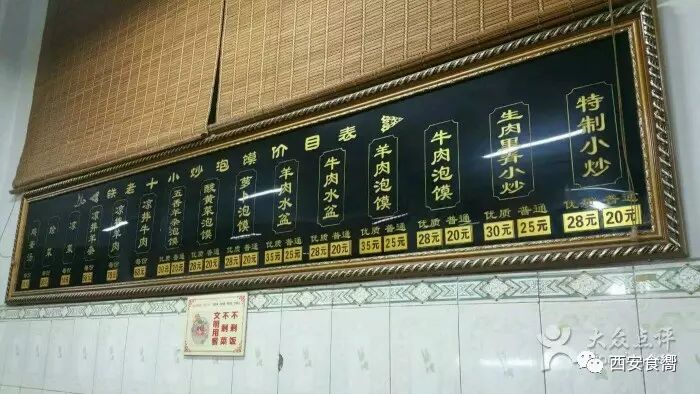 铁老十小炒泡馍价目表
凉菜
凉拌牛肉
每份
五香羊杂泡馍
优质 普通
酸黄菜泡馍
优质 普通
28元 20元
萝卜泡馍
优质 普通
28元 20元
羊肉水盆
优质 普通
35元 25元
牛肉水盆
优质 普通
28元 20元
羊肉泡馍
优质 普通
35元 25元
牛肉泡馍
优质 普通
28元 20元
生肉里脊小炒
优质 普通
30元 25元
特制小炒
优质 普通
28元 20元
不剩饭
不剩菜
文明用餐
大众点评
西安食嚮